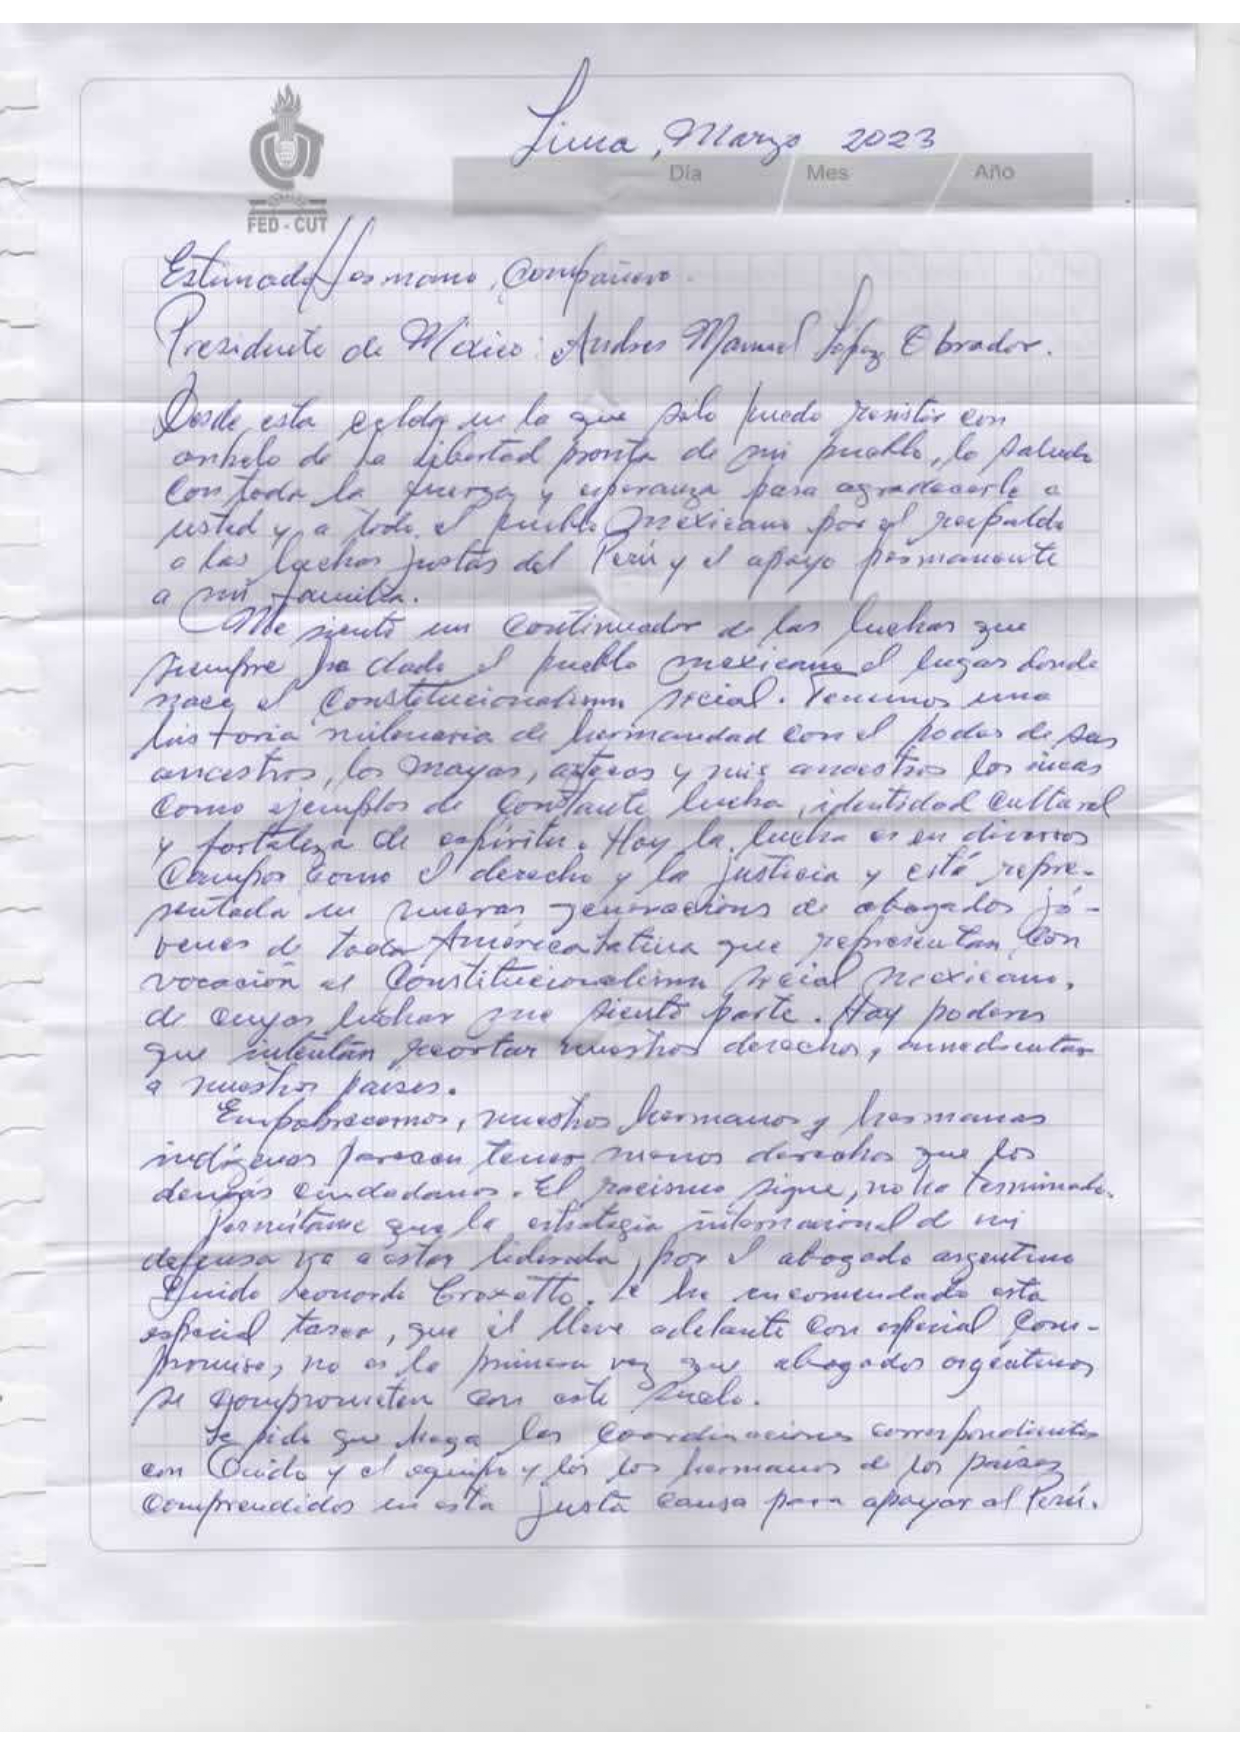 Lima, Marzo 2023
Día Mes Año
FED - CUT
Estimado Hermano, Compañero.
Presidente de México: Andres Manuel López Obrador.
Desde esta celda en la que sólo puedo resistir con
anhelo de la libertad pronta de mi pueblo, lo saludo
con toda la fuerza y esperanza para agradecerle a
usted y a todo el pueblo mexicano por el respaldo
a las luchas justas del Perú y el apoyo permanente
a mi familia.
Me siento un continuador de las luchas que
siempre ha dado el pueblo mexicano el lugar donde
nace el constitucionalismo social. Tenemos una
historia milenaria de hermandad con el poder de sus
ancestros, los mayas, aztecas y mis ancestros los incas
como ejemplos de constante lucha, identidad cultural
y fortaleza de espíritu. Hoy la lucha es en diversos
campos como el derecho y la justicia y está repre-
sentada en nuevas generaciones de abogados jó-
venes de toda América Latina que representan con
vocación el constitucionalismo social mexicano,
de cuyas luchas me siento parte. Hay poderes
que intentan recortar nuestros derechos,
a nuestros países.
Empobrecernos, nuestros hermanos y hermanas
indígenas parecen tener menos derechos que los
demás ciudadanos. El racismo sigue, no ha terminado.
Permítame que la estrategia internacional de mi
defensa va a estar liderada, por el abogado argentino
Guido Leonardo Croxatto. Le he encomendado esta
especial tarea, que él lleve adelante con especial com-
promiso, no es la primera vez que abogados argentinos
se comprometen con este suelo.
Le pido que haga las coordinaciones correspondientes
con Guido y el equipo y los los hermanos de los países
comprendidos en esta justa causa para apoyar al Perú.